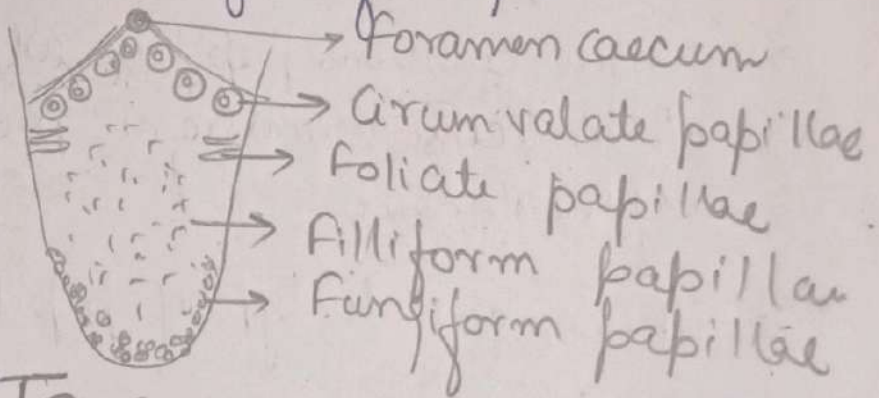 Foramen caecum
Cirumvalate papillae
Foliate papillae
Filliform papillae
Fungiform papillae